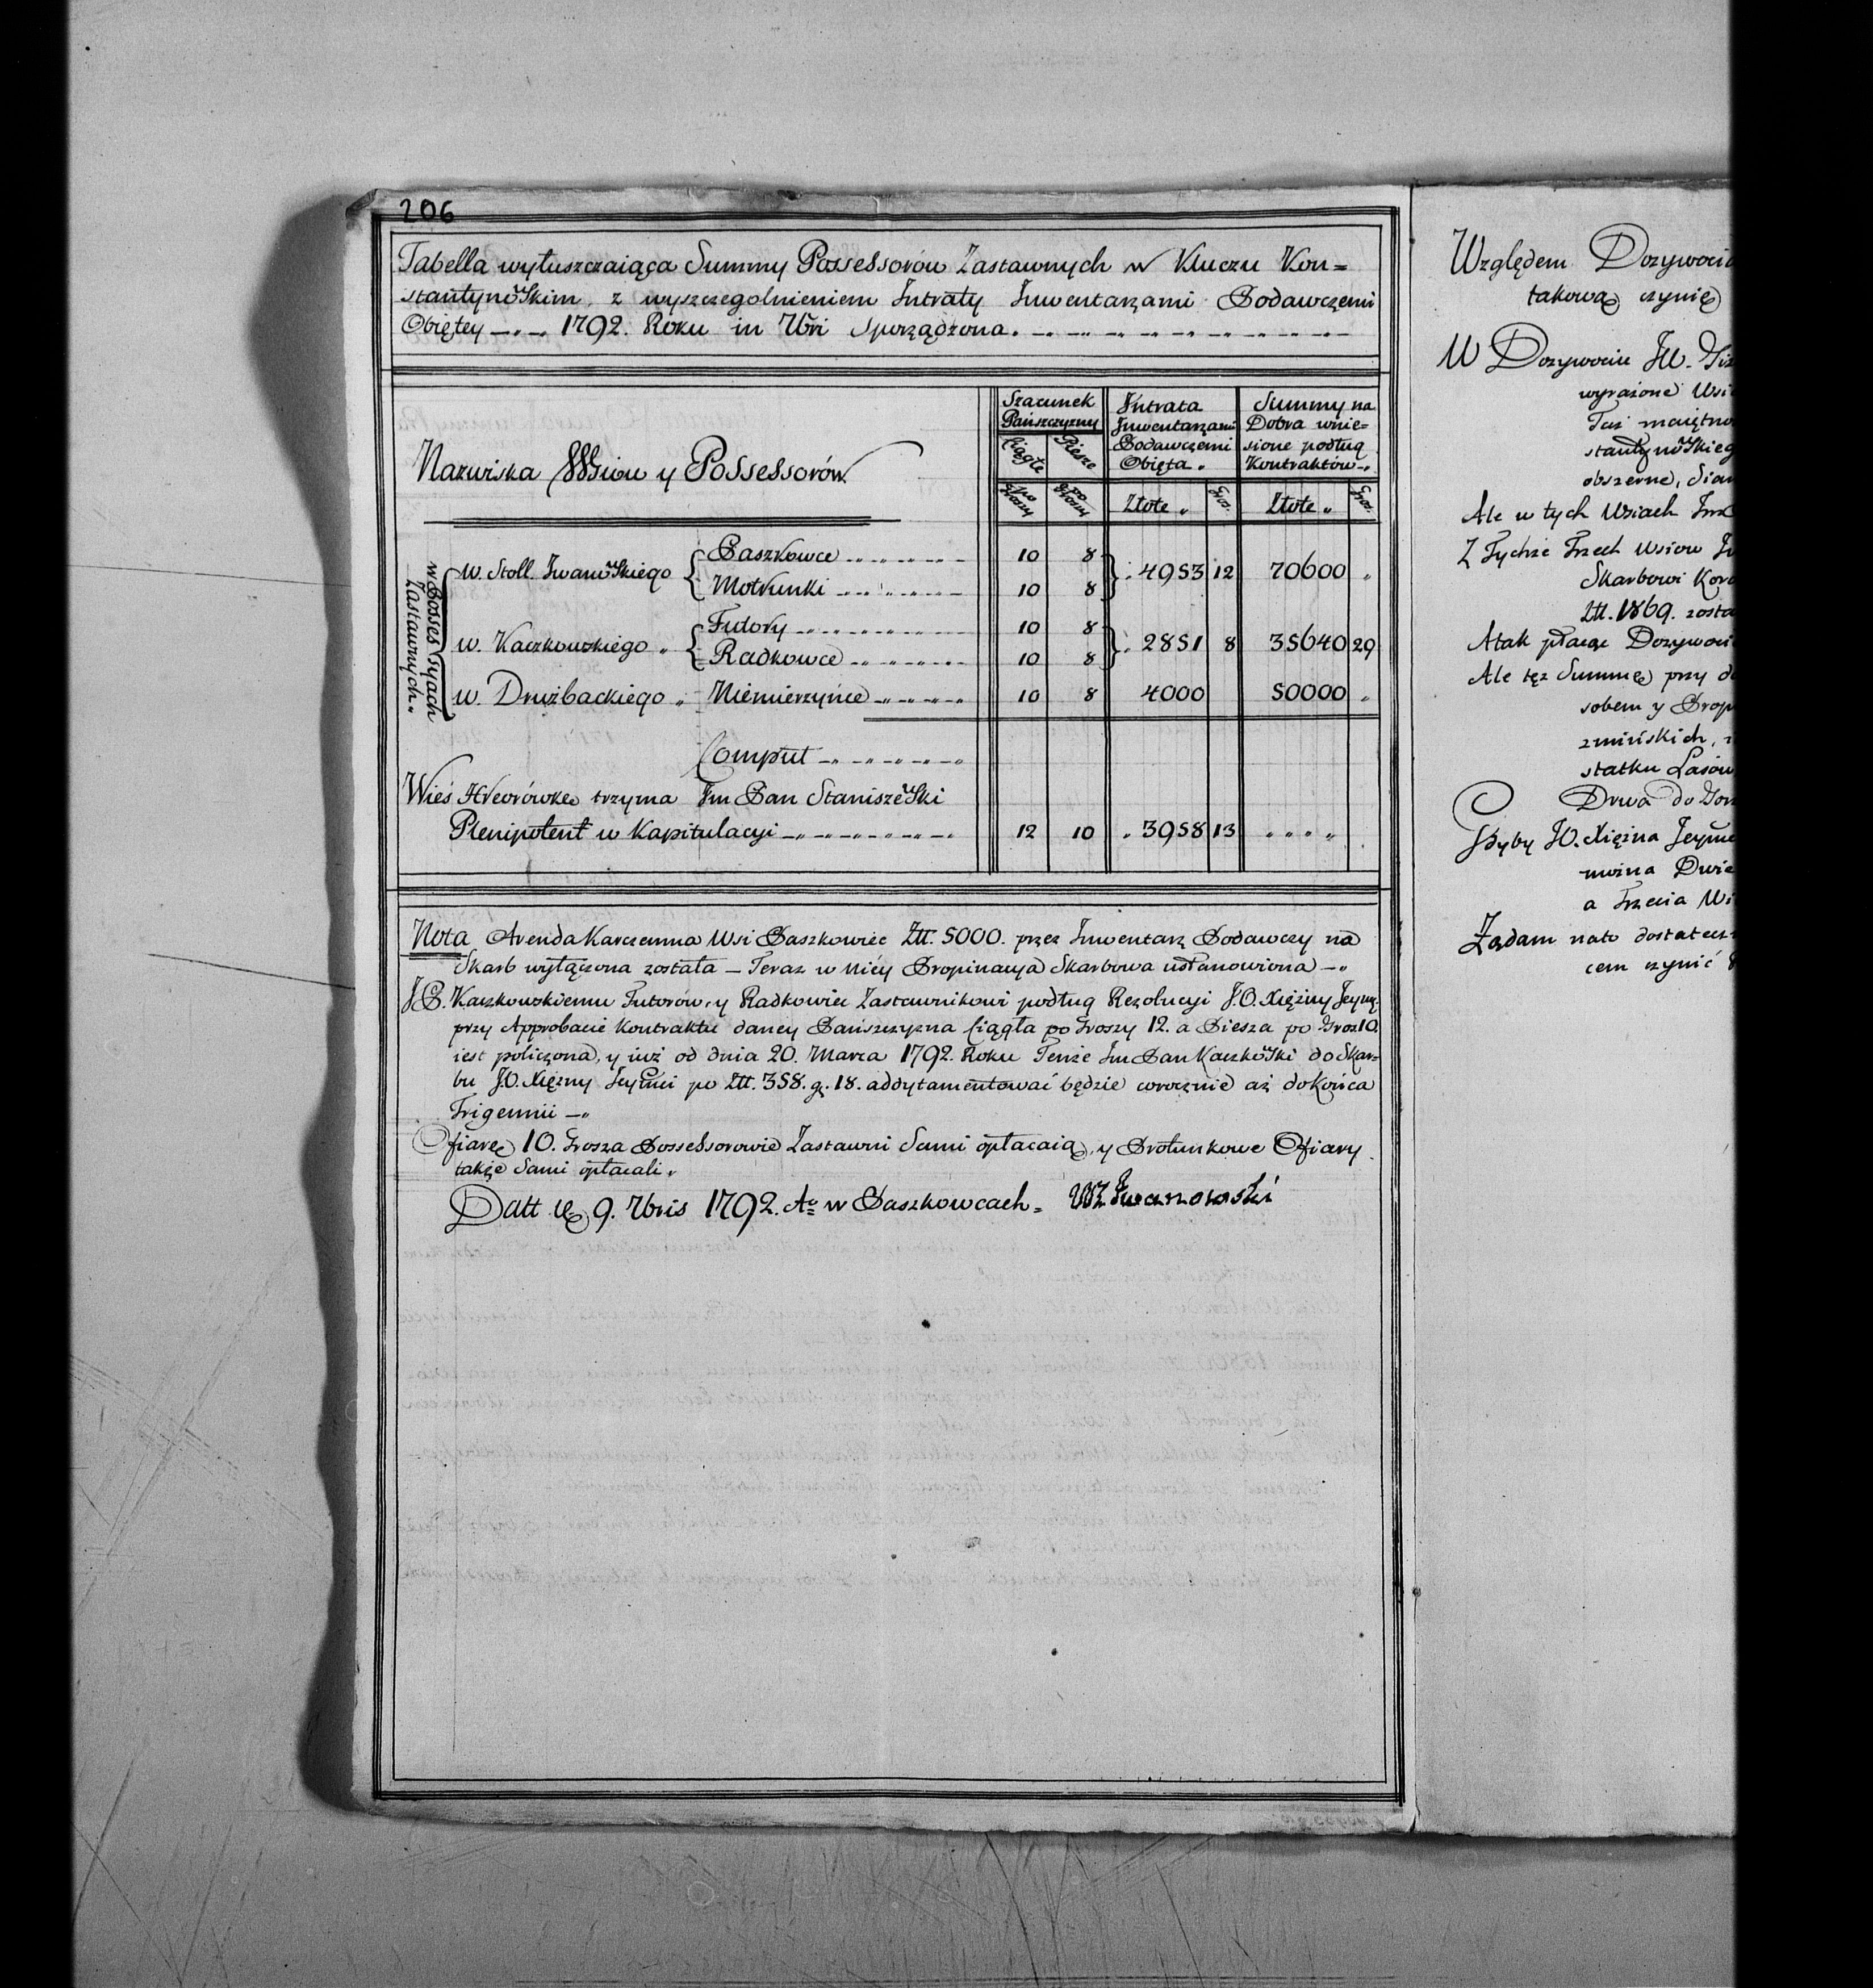 206
Tabella wyłuszczaiąca Summy Possessorów Zastawnych w Kluczu Kon=
stantynowskim z wyszczegolnieniem Intraty Inwentarzami Podawczemi
Obiętey 1792. Roku in 7bri Sporządzona.
Nazwiska Wsiow y Possessorów
Szacunek Pańszczyzny
Ciągłe
Piesze
po Groszy
po Groszy
Intrata Inwentarzami Podawczemi Obięta
Złote
Gros.
Summy na Dobra wnie=
sione podług Kontraktów
Złote
Gros.
w Possessyach Zastawnych
W. Stoll. Iwanowskiego Paszkowce 10 8
Motrunki 10 8
4953 12 70600
W. Kaczkowskiego Futory 10 8
Radkowce 10 8
2851 8 35640 29
W. Drużbackiego Niemierzyńce 10 8 4000 50000
Comput
Wieś Hreorówkę trzyma Im Pan Staniszewski
Plenipotent w Kapitulacyi 12 10 3958 13
Nota Arenda Karczemna Wsi Paszkowiec Ztt. 5000. przez Inwentarz Podawczy na
Skarb wyłączona została — Teraz w Niéy Propinacya Skarbowa ustanowiona
J.P. Kaczkowskiemu Futorów, y Radkowiec Zastawnikowi podług Rezolucyi J.O. Xiężny Jeymć.
przy Approbacie Kontraktu daney Pańszczyzna Ciągła po Groszy 12. a Piesza po Gros 10.
iest policzona, y iuż od dnia 20. Marca 1792. Roku Tenże Im Pan Kaczkowski do Skar=
bu J.O. Xiężny Jeymci po Ztt. 358. g. 18. addytamentować będzie corocznie aż do Końca
Trigennii
Ofiarę 10. Grosza Possessorowie Zastawni Sami opłacaią, y Protunkowe Ofiary
także Sami opłacali.
Datt 9. 7bris 1792. Aº w Paszkowcach. Iwanowski
Względem Dozywocia
takową czynię
W Dozywociu JW.
wyrażone Wsi
Taż maiętno
stantynowskieg
obszerne,
Ale w tych Wsiach
Z Tychże Trzech Wsiow
Skarbowi
Ztt. 1869. zosta
A tak płacąc Dozywoci
Ale tęż Summę przy
sobem y Prop
statku Lasów
Drwa do
Gdyby J.O. Xiężna Jeymć
można Dwie
a Trzecia Wi
Żądam na to dostatecz
cem czynić